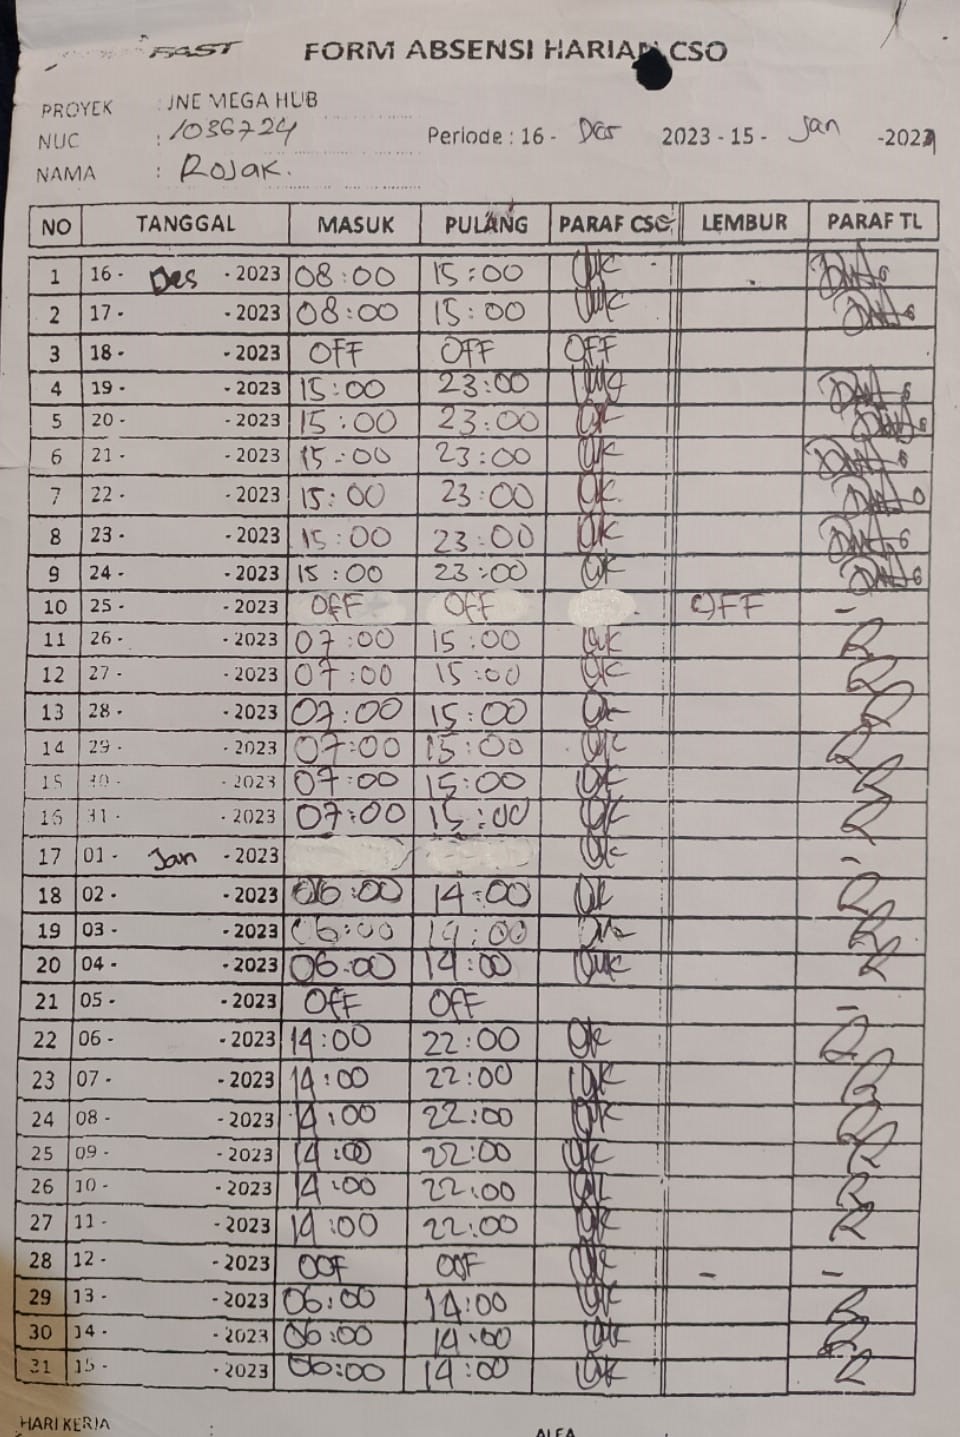 FAST
FORM ABSENSI HARIAN CSO
PROYEK : JNE MEGA HUB
NUC : 1036724
Periode : 16 - Des 2023 - 15 - Jan - 202
NAMA : Rojak.
NO TANGGAL MASUK PULANG PARAF CSO LEMBUR PARAF TL
1 16 - Des - 2023 08:00 15:00
2 17 - - 2023 08:00 15:00
3 18 - - 2023 OFF OFF OFF
4 19 - - 2023 15:00 23:00
5 20 - - 2023 15:00 23:00
6 21 - - 2023 15:00 23:00
7 22 - - 2023 15:00 23:00
8 23 - - 2023 15:00 23:00
9 24 - - 2023 15:00 23:00
10 25 - - 2023 OFF OFF OFF -
11 26 - - 2023 07:00 15:00
12 27 - - 2023 07:00 15:00
13 28 - - 2023 07:00 15:00
14 29 - - 2023 07:00 15:00
15 30 - - 2023 07:00 15:00
16 31 - - 2023 07:00 15:00
17 01 - Jan - 2023 -
18 02 - - 2023 06:00 14:00
19 03 - - 2023 06:00 14:00
20 04 - - 2023 06:00 14:00
21 05 - - 2023 OFF OFF -
22 06 - - 2023 14:00 22:00
23 07 - - 2023 14:00 22:00
24 08 - - 2023 14:00 22:00
25 09 - - 2023 14:00 22:00
26 10 - - 2023 14:00 22:00
27 11 - - 2023 14:00 22:00
28 12 - - 2023 OOF OOF - -
29 13 - - 2023 06:00 14:00
30 14 - - 2023 06:00 14:00
31 15 - - 2023 06:00 14:00
HARI KERJA : ALFA